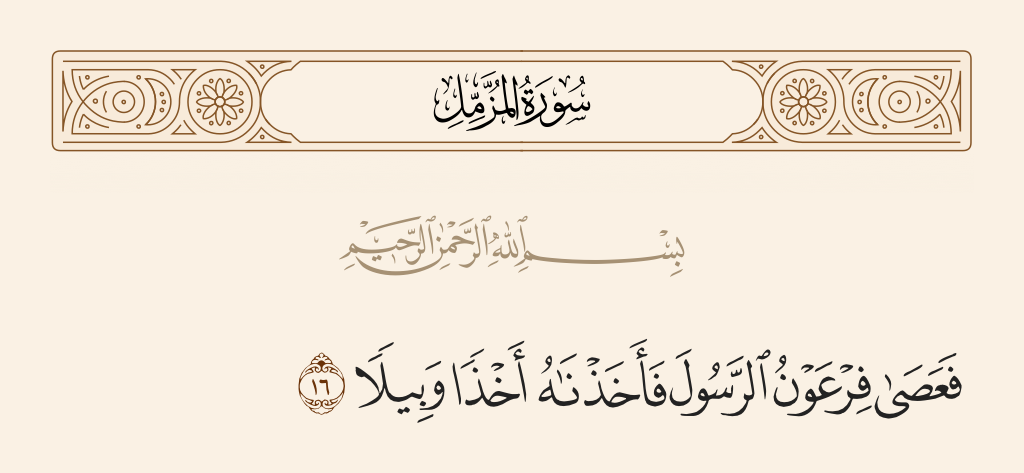 سُورَةُ المُزَّمِّلِ
بِسْمِ ٱللَّهِ ٱلرَّحْمَٰنِ ٱلرَّحِيمِ
فَعَصَىٰ فِرْعَوْنُ ٱلرَّسُولَ فَأَخَذْنَٰهُ أَخْذًا وَبِيلًا ١٦